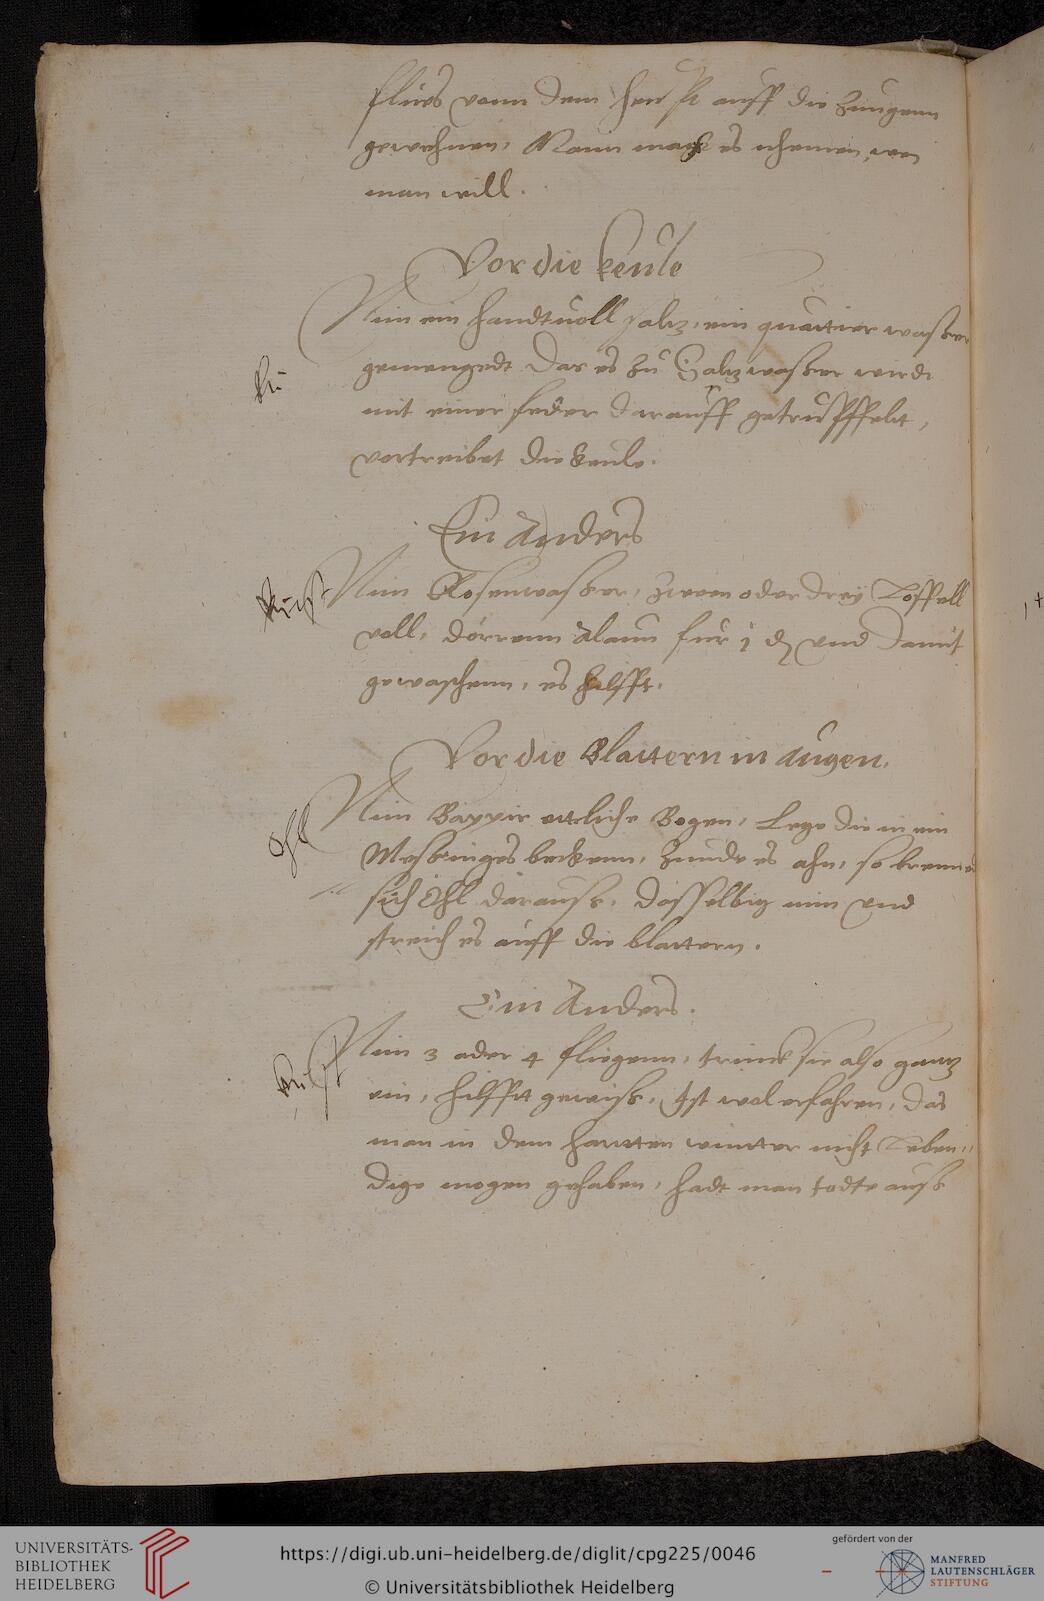 fluss vonn dem heupt auff die Zungenn
gewehnen, Mann mack es nhemen, wen
man will.
Vor die keule
Nim ein handtuoll saltz, ein quartier wasser
gemengedt Das es zu Saltzwasser wirdt
mit einer feder darauff getrupffelt,
vortreibet die keule.
Ein Anders
Nim Rosenwasser, zween oder drey Loffell
voll, dörrenn Alaun fur 1 ₰ vnd damit
gewaschenn, es hilfft.
Vor die Blattern in Augen.
Nim Bappir ettliche Bogen, Lege die in ein
Messinges beckenn, Zunde es ahn, so brennes
sich Öhl darauss, dasselbig nim vnd
streich es auff die blattern.
Ein Anders.
Nim 3 oder 4 fliegenn, trinck sie also gantz
ein, hilfft gewiss, Ist wol erfahren, das
man in dem hartten winter nicht Leben,,
dige mogen gehaben, hadt man todte auss
Öhl
UNIVERSITÄTS-
BIBLIOTHEK
HEIDELBERG
https://digi.ub.uni-heidelberg.de/diglit/cpg225/0046
© Universitätsbibliothek Heidelberg
gefördert von der
MANFRED
LAUTENSCHLÄGER
STIFTUNG